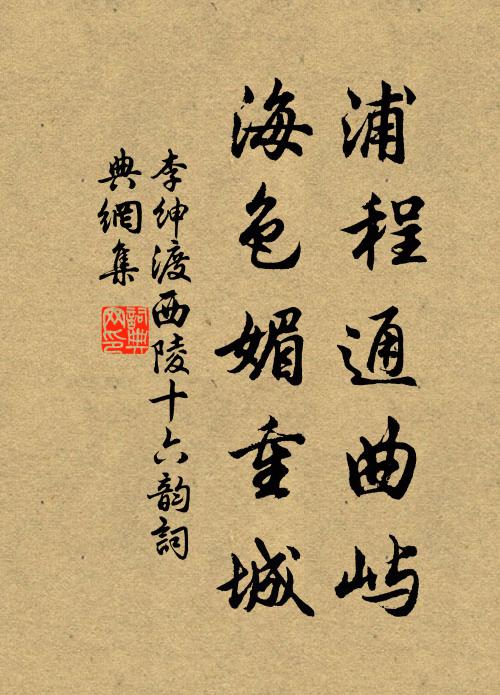 浦程通曲屿
海色媚重城
李绅渡西陵十六韵詞
典網集
詞典
网印